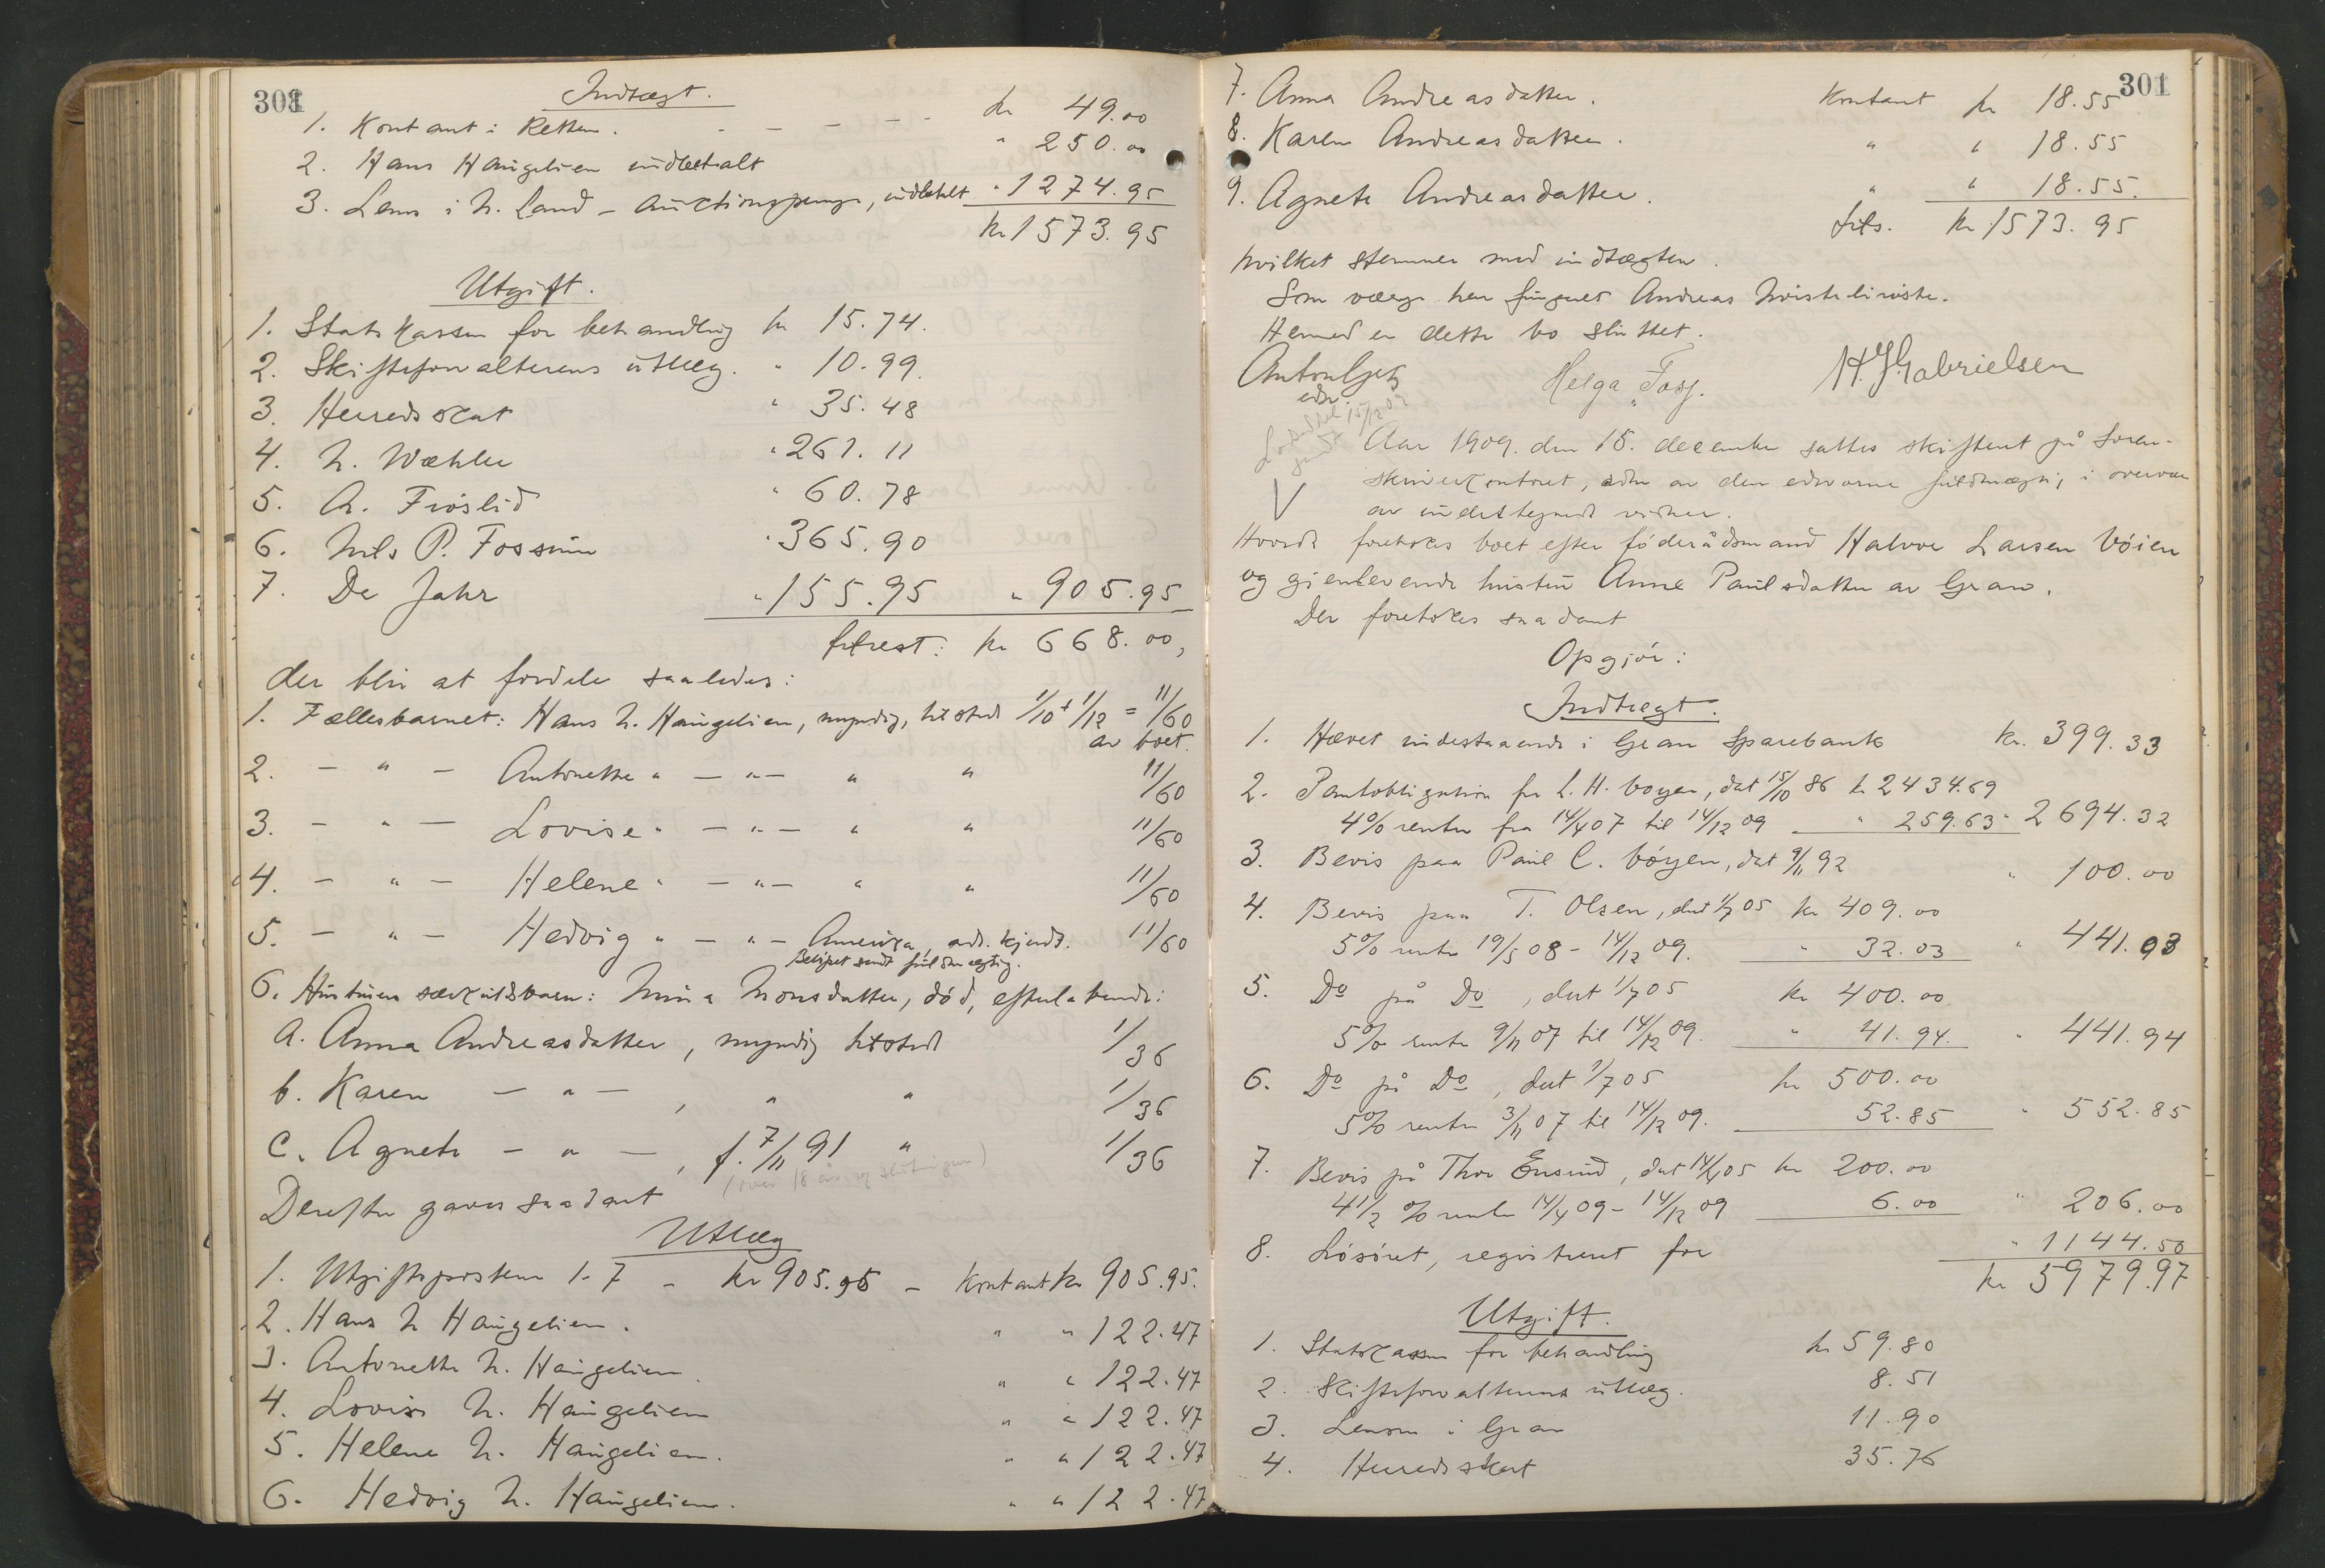 301
Indtægt.
1. Kontant i Retten. - - - - - kr 49.00
2. Hans Haugelien indbetalt " 250.00
3. Lens. i N. Land - auctionspenge, indbetalt " 1274.95
kr 1573.95
Utgift.
1. Statskassen for behandling kr 15.74.
2. Skifteforvalterens utlæg. " 10.99.
3. Herredsskat " 35.48
4. N. Wæhler " 261.11
5. A. Fröslid " 60.78
6. Nils P. Fossum " 365.90
7. De Jahr " 155.95 " 905.95
kr 668.00,
der blir at fordele saaledes:
1. Fællesbarnet: Hans N. Haugelien, myndig, tilstede 1/10 + 1/12 = 11/60
av boet.
2. - " - Antonette " - " - " " 11/60
3. - " - Lovise " - " - " " 11/60
4. - " - Helene " - " - " " 11/60
5. - " - Hedvig " - " - Amerika, adr. kjendt. 11/60
Beløpet sendt fuldmægtig.
6. Hustruens særkuldsbarn: Monsdatter, död, efterlatende:
a. Anna Andreasdatter, myndig tilstede 1/36
b. Karen - " - , " " 1/36
c. Agnete - " - , f. 7/11 91 " 1/36
(over 18 år
Derefter gaves saadant
Utlæg
1. Utgiftsposterne 1-7 - kr 905.95 - kontant kr 905.95.
2. Hans N Haugelien. " " 122.47
3. Antonette N. Haugelien. " " 122.47
4. Lovise N. Haugelien " " 122.47
5. Helene N. Haugelien. " " 122.47
6. Hedvig N. Haugelien. " " 122.47
301
7. Anna Andreasdatter. Kontant kr 18.55
8. Karen Andreasdatter. " " 18.55
9. Agnete Andreasdatter. " " 18.55.
Tils. kr 1573.95
hvilket stemmer med indtægten.
Som værge har fungert Andreas
Hermed er dette bo sluttet.
Anton Gjet Helga Fosj. H. J. Gabrielsen
edsv.
15/12 09
Aar 1909. den 15. december sattes skifteret på Soren-
skriverkontoret, adm av den edsvorne fuldmægtig i overvær
av undertegnede vidner.
Hvorda foretokes boet efter föderådsmand Halvor Larsen Vöien
og gjenlevende hustru Anne Paulsdatter av Gran.
Der foretokes saadant
Opgjör:
Indtægt.
1. Hævet indestaaende i Gran Sparebank kr. 399.33
2. Pantobligation fra L. H. Vøyen, dat 15/10 86 kr 2434.69
4% renter fra 14/4 07 til 14/12 09 " 259.63 " 2694.32
3. Bevis paa Paul C. Vöyen, dat 9/11 92 " 100.00
4. Bevis paa T. Olsen, dat 1/7 05 kr 409.00
5% rente 19/5 08 - 14/12 09. " 32.03 " 441.03
5. Do på Do, dat 1/7 05 kr 400.00
5% rente 9/11 07 til 14/12 09. " 41.94. " 441.94
6. Do på Do, dat 1/7 05 kr 500.00
5% rente 3/11 07 til 14/12 09. 52.85 " 552.85
7. Bevis på Thor Ensrud, dat 14/4 05 kr 200.00
4 1/2 % rente 14/4 09 - 14/12 09 6.00 " 206.00
8. Lösöret, registreret for " 1144.50
kr 5979.97
Utgift.
1. Statskassen for behandling kr 59.80
2. Skifteforvalterens utlæg. 8.51
3. Lensm i Gran 11.90
4. Herredsskat 35.76